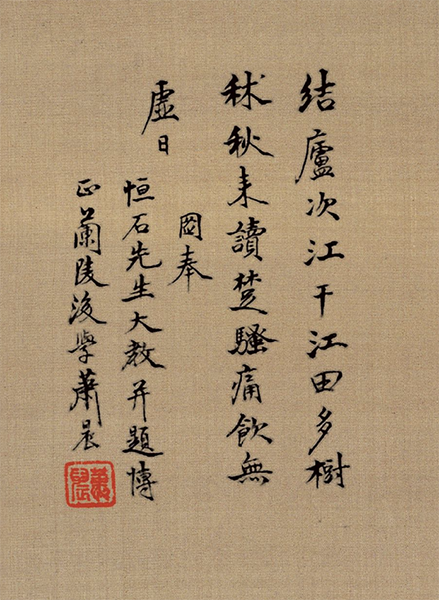 結廬次江干江田多樹
秫秋来讀楚騷痛飲無
虛日
奉
恒石先生大教并題博
正蘭陵後學蕭晨
蕭晨